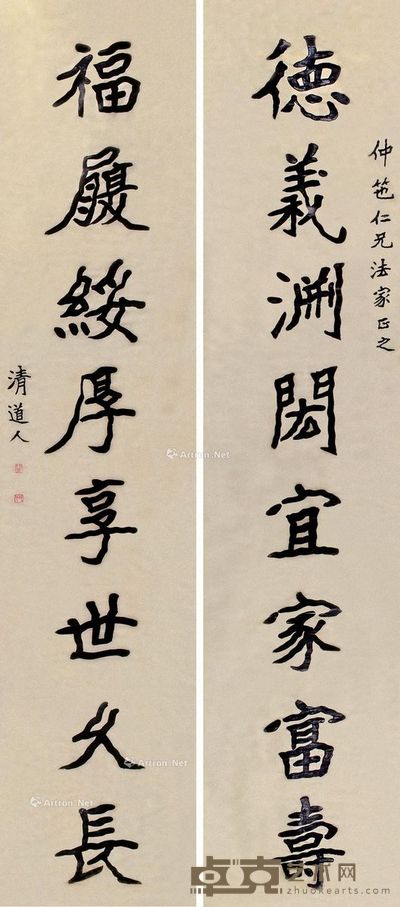 仲篪仁兄法家正之
德義渊閎宜家富壽
福履綏厚享世久長
清道人
Artron.Net
Artron.Net
Artron.Net
卓克艺术网
zhuokearts.com